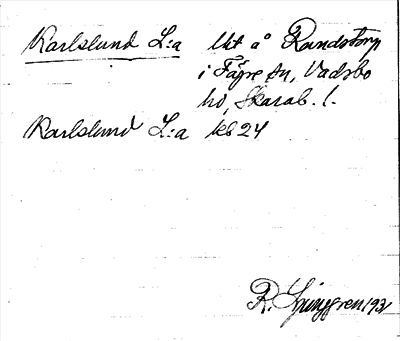 Karlslund L:a lht å Randstorp
i Fägre sn, Vadsbo
hd, Skarab. l.
Karlslund L:a Kb 24
R. Ljunggren 1931